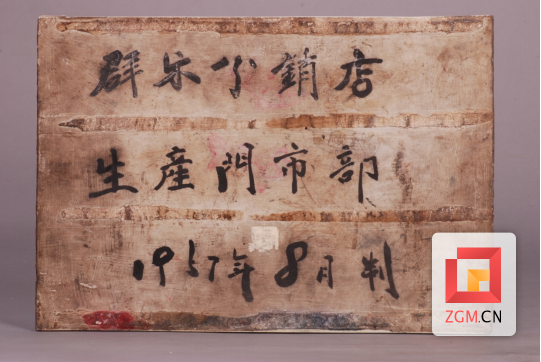 群乐分銷店
生產門市部
1957年8月判
ZGM.CN